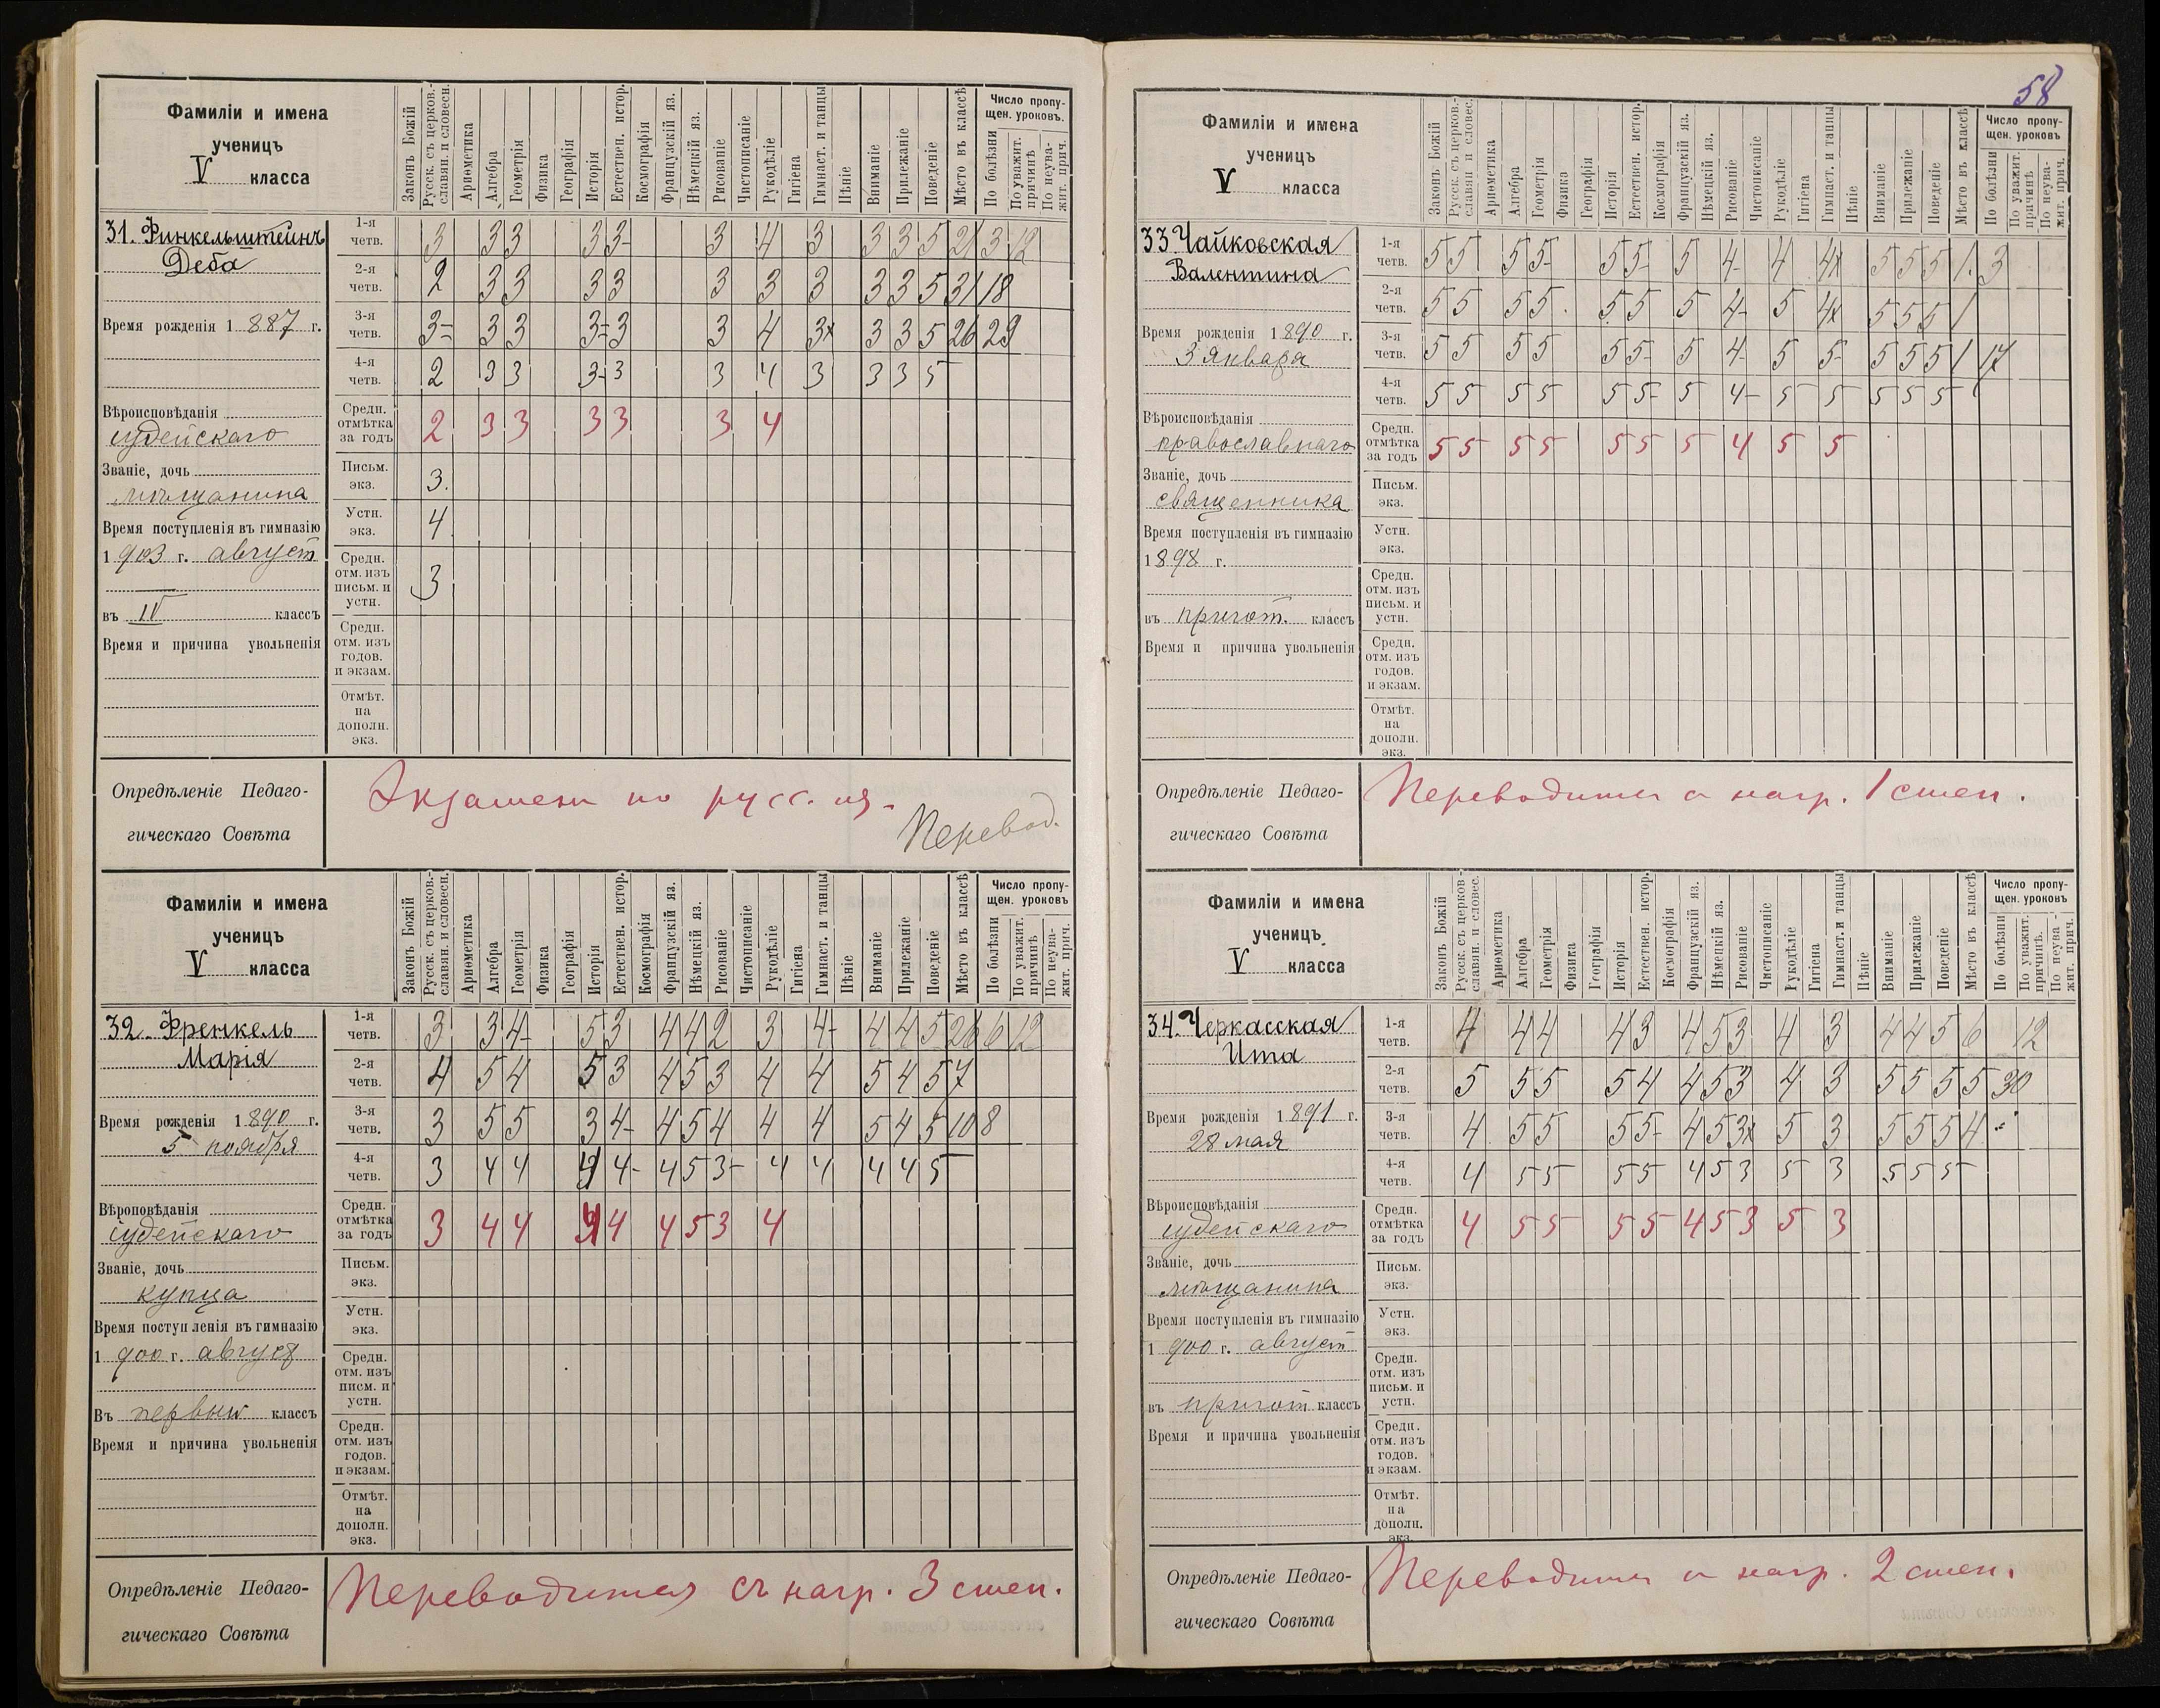 58
Фамиліи и имена
ученицъ
V класса
Законъ Божій
Русск. съ церков.-
славян. и словесн.
Ариѳметика
Алгебра
Геометрія
Физика
Географія
Исторія
Естествен. истор.
Космографія
Французскій яз.
Нѣмецкій яз.
Рисованіе
Чистописаніе
Рукодѣліе
Гигіена
Гимнаст. и танцы
Пѣніе
Вниманіе
Прилежаніе
Поведеніе
Мѣсто въ классѣ
Число пропу-
щен. уроковъ.
По болѣзни
По уважит.
причинѣ
По неува-
жит. прич.
31. Финкельштейнъ
Деба
Время рожденія 1 887 г.
Вѣроисповѣданія
іудейскаго
Званіе, дочь
мѣщанина
Время поступленія въ гимназію
1 903 г. август
въ IV классъ
Время и причина увольненія
1-я четв. 3 3 3 3 3- 3 4 3 3 3 5 21 3 12
2-я четв. 2 3 3 3 3 3 3 3 3 3 5 31 18
3-я четв. 3- 3 3 3- 3 3 4 3x 3 3 5 26 29
4-я четв. 2 3 3 3- 3 3 4 3 3 3 5
Средн. отмѣтка за годъ 2 3 3 3 3 3 4
Письм. экз. 3.
Устн. экз. 4
Средн. отм. изъ письм. и устн. 3
Средн. отм. изъ годов. и экзам.
Отмѣт. на дополн. экз.
Опредѣленіе Педаго-
гическаго Совѣта
Экзамен по русс. яз.
Перевод.
Фамиліи и имена
ученицъ
V класса
Законъ Божій
Русск. съ церков.-
славян. и словесн.
Ариѳметика
Алгебра
Геометрія
Физика
Географія
Исторія
Естествен. истор.
Космографія
Французскій яз.
Нѣмецкій яз.
Рисованіе
Чистописаніе
Рукодѣліе
Гигіена
Гимнаст. и танцы
Пѣніе
Вниманіе
Прилежаніе
Поведеніе
Мѣсто въ классѣ
Число пропу-
щен. уроковъ
По болѣзни
По уважит.
причинѣ
По неува-
жит. прич.
32. Френкель
Марія
Время рожденія 1 890 г.
5 ноября
Вѣроповѣданія
іудейскаго
Званіе, дочь
купца
Время поступленія въ гимназію
1 900 г. август
Въ первый классъ
Время и причина увольненія
1-я четв. 3 3 4- 5 3 4 4 2 3 4- 4 4 5 26 6 12
2-я четв. 4 5 4 5 3 4 5 3 4 4 5 4 5 7
3-я четв. 3 5 5 3 4- 4 5 4 4 4 5 4 5 10 8
4-я четв. 3 4 4 4 4- 4 5 3- 4 4 4 4 5
Средн. отмѣтка за годъ 3 4 4 4 4 4 5 3 4
Письм. экз.
Устн. экз.
Средн. отм. изъ писм. и устн.
Средн. отм. изъ годов. и экзам.
Отмѣт. на дополн. экз.
Опредѣленіе Педаго-
гическаго Совѣта
Переводится съ нагр. 3 степ.
Фамиліи и имена
ученицъ
V класса
Законъ Божій
Русск. съ церков.-
славян и словес.
Ариѳметика
Алгебра
Геометрія
Физика
Географія
Исторія
Естествен. истор.
Космографія
Французскій яз.
Нѣмецкій яз.
Рисованіе
Чистописаніе
Рукодѣліе
Гигіена
Гимнаст. и танцы
Пѣніе
Вниманіе
Прилежаніе
Поведеніе
Мѣсто въ классѣ
Число пропу-
щен. уроковъ
По болѣзни
По уважит.
причинѣ
По неува-
жит. прич.
33. Чайковская
Валентина
Время рожденія 1 890 г.
3 Января
Вѣроисповѣданія
православнаго
Званіе, дочь
священника
Время поступленія въ гимназію
1 898 г.
въ пригот. классъ
Время и причина увольненія
1-я четв. 5 5 5 5- 5 5- 5 4- 4 4x 5 5 5 1. 3
2-я четв. 5 5 5 5 5 5 5 4- 5 4x 5 5 5 1
3-я четв. 5 5 5 5 5 5- 5 4- 5 5- 5 5 5 1 17
4-я четв. 5 5 5 5 5 5- 5 4- 5 5 5 5 5
Средн. отмѣтка за годъ 5 5 5 5 5 5 5 4 5 5
Письм. экз.
Устн. экз.
Средн. отм. изъ письм. и устн.
Средн. отм. изъ годов. и экзам.
Отмѣт. на дополн. экз.
Опредѣленіе Педаго-
гическаго Совѣта
Переводится с нагр. 1 степ.
Фамиліи и имена
ученицъ
V класса
Законъ Божій
Русск. съ церков-
славян. и словес.
Ариѳметика
Алгебра
Геометрія
Физика
Географія
Исторія
Естествен. истор.
Космографія
Французскій яз.
Нѣмецкій яз.
Рисованіе
Чистописаніе
Рукодѣліе
Гигіена
Гимнаст. и танцы
Пѣніе
Вниманіе
Прилежаніе
Поведеніе
Мѣсто въ классѣ
Число пропу-
щен. уроковъ.
По болѣзни
По уважит.
причинѣ.
По неува-
жит. прич.
34. Черкасская
Ита
Время рожденія 1 891 г.
28 мая
Вѣроисповѣданія
іудейскаго
Званіе, дочь
мѣщанина
Время поступленія въ гимназію
1 900 г. август
въ пригот классъ
Время и причина увольненія
1-я четв. 4 4 4 4 3 4 5 3 4 3 4 4 5 6 12
2-я четв. 5 5 5 5 4 4 5 3 4 3 5 5 5 5 30
3-я четв. 4 5 5 5 5- 4 5 3x 5 3 5 5 5 4
4-я четв. 4 5 5 5 5 4 5 3 5 3 5 5 5
Средн. отмѣтка за годъ 4 5 5 5 5 4 5 3 5 3
Письм. экз.
Устн. экз.
Средн. отм. изъ письм. и устн.
Средн. отм. изъ годов. и экзам.
Отмѣт. на дополн. экз.
Опредѣленіе Педаго-
гическаго Совѣта
Переводится с нагр. 2 степ.